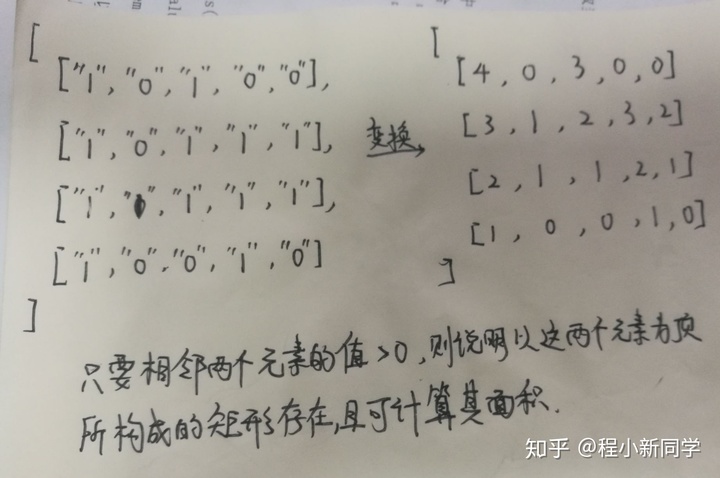 [
["1","0","1","0","0"],
["1","0","1","1","1"],
["1","1","1","1","1"],
["1","0","0","1","0"]
]
变换
[
[4,0,3,0,0]
[3,1,2,3,2]
[2,1,1,2,1]
[1,0,0,1,0]
]
只要相邻两个元素的值>0,则说明以这两个元素为顶
所构成的矩形存在,且可计算其面积.
知乎 @程小新同学